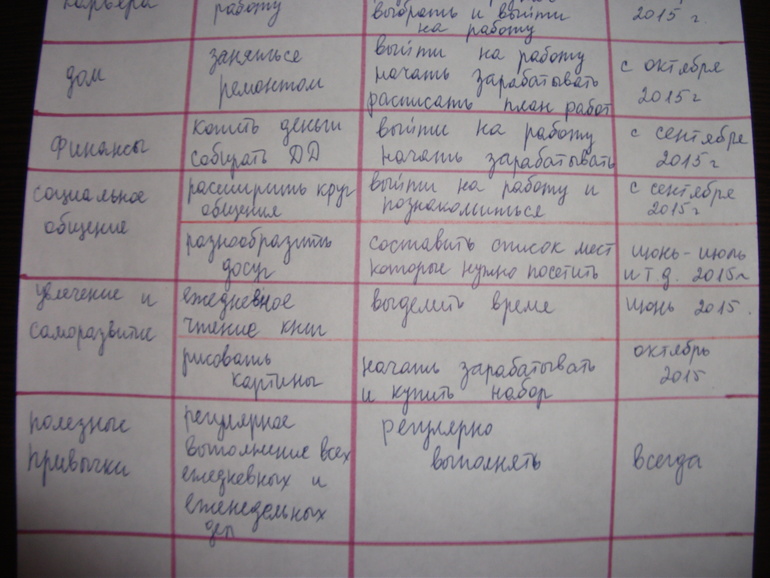 карьера
работу
выбрать и выйти
на работу
2015 г.
дом
заняться
ремонтом
выйти на работу
начать зарабатывать
расписать план работ
с октября
2015 г
финансы
копить деньги
собирать ДД
выйти на работу
начать зарабатывать
с сентября
2015 г
социальное
общение
расширить круг
общения
выйти на работу и
познакомиться
с сентября
2015 г
разнообразить
досуг
составить список мест
которые нужно посетить
июнь-июль
и т.д. 2015г
увлечение и
саморазвитие
ежедневное
чтение книг
выделить время
июнь 2015.
рисовать
картины
начать зарабатывать
и купить набор
октябрь
2015
полезные
привычки
регулярное
выполнение всех
ежедневных и
еженедельных
дел
регулярно
выполнять
всегда